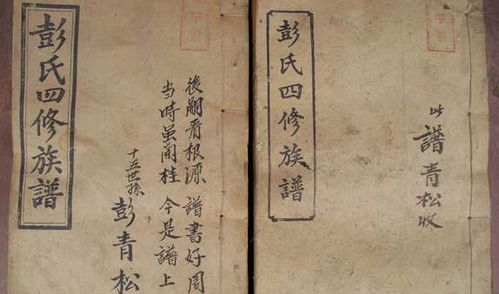 彭氏四修族譜
後嗣看根源譜書好周
当時虽開桂今是譜上
十五世孫彭青松
彭氏四修族譜
此譜青松收